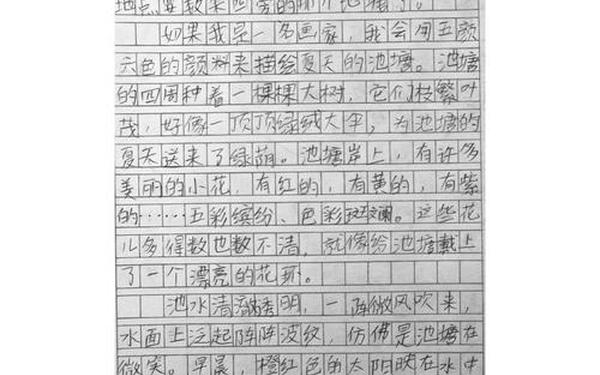 地点要数老四旁的那个池塘了。
如果我是一名画家，我会用五颜
六色的颜料来描绘夏天的池塘。池塘
的四周种着一棵棵大树，它们枝繁叶
茂，好像一顶顶绿绒大伞，为池塘的
夏天送来了绿荫。池塘岸上，有许多
美丽的小花，有红的，有黄的，有紫
的……五彩缤纷、色彩斑斓。这些花
儿多得数也数不清，就像给池塘戴上
了一个漂亮的花环。
池水清澈透明，一阵微风吹来，
水面上泛起阵阵波纹，仿佛是池塘在
微笑。早晨，橙红色的太阳映在水中